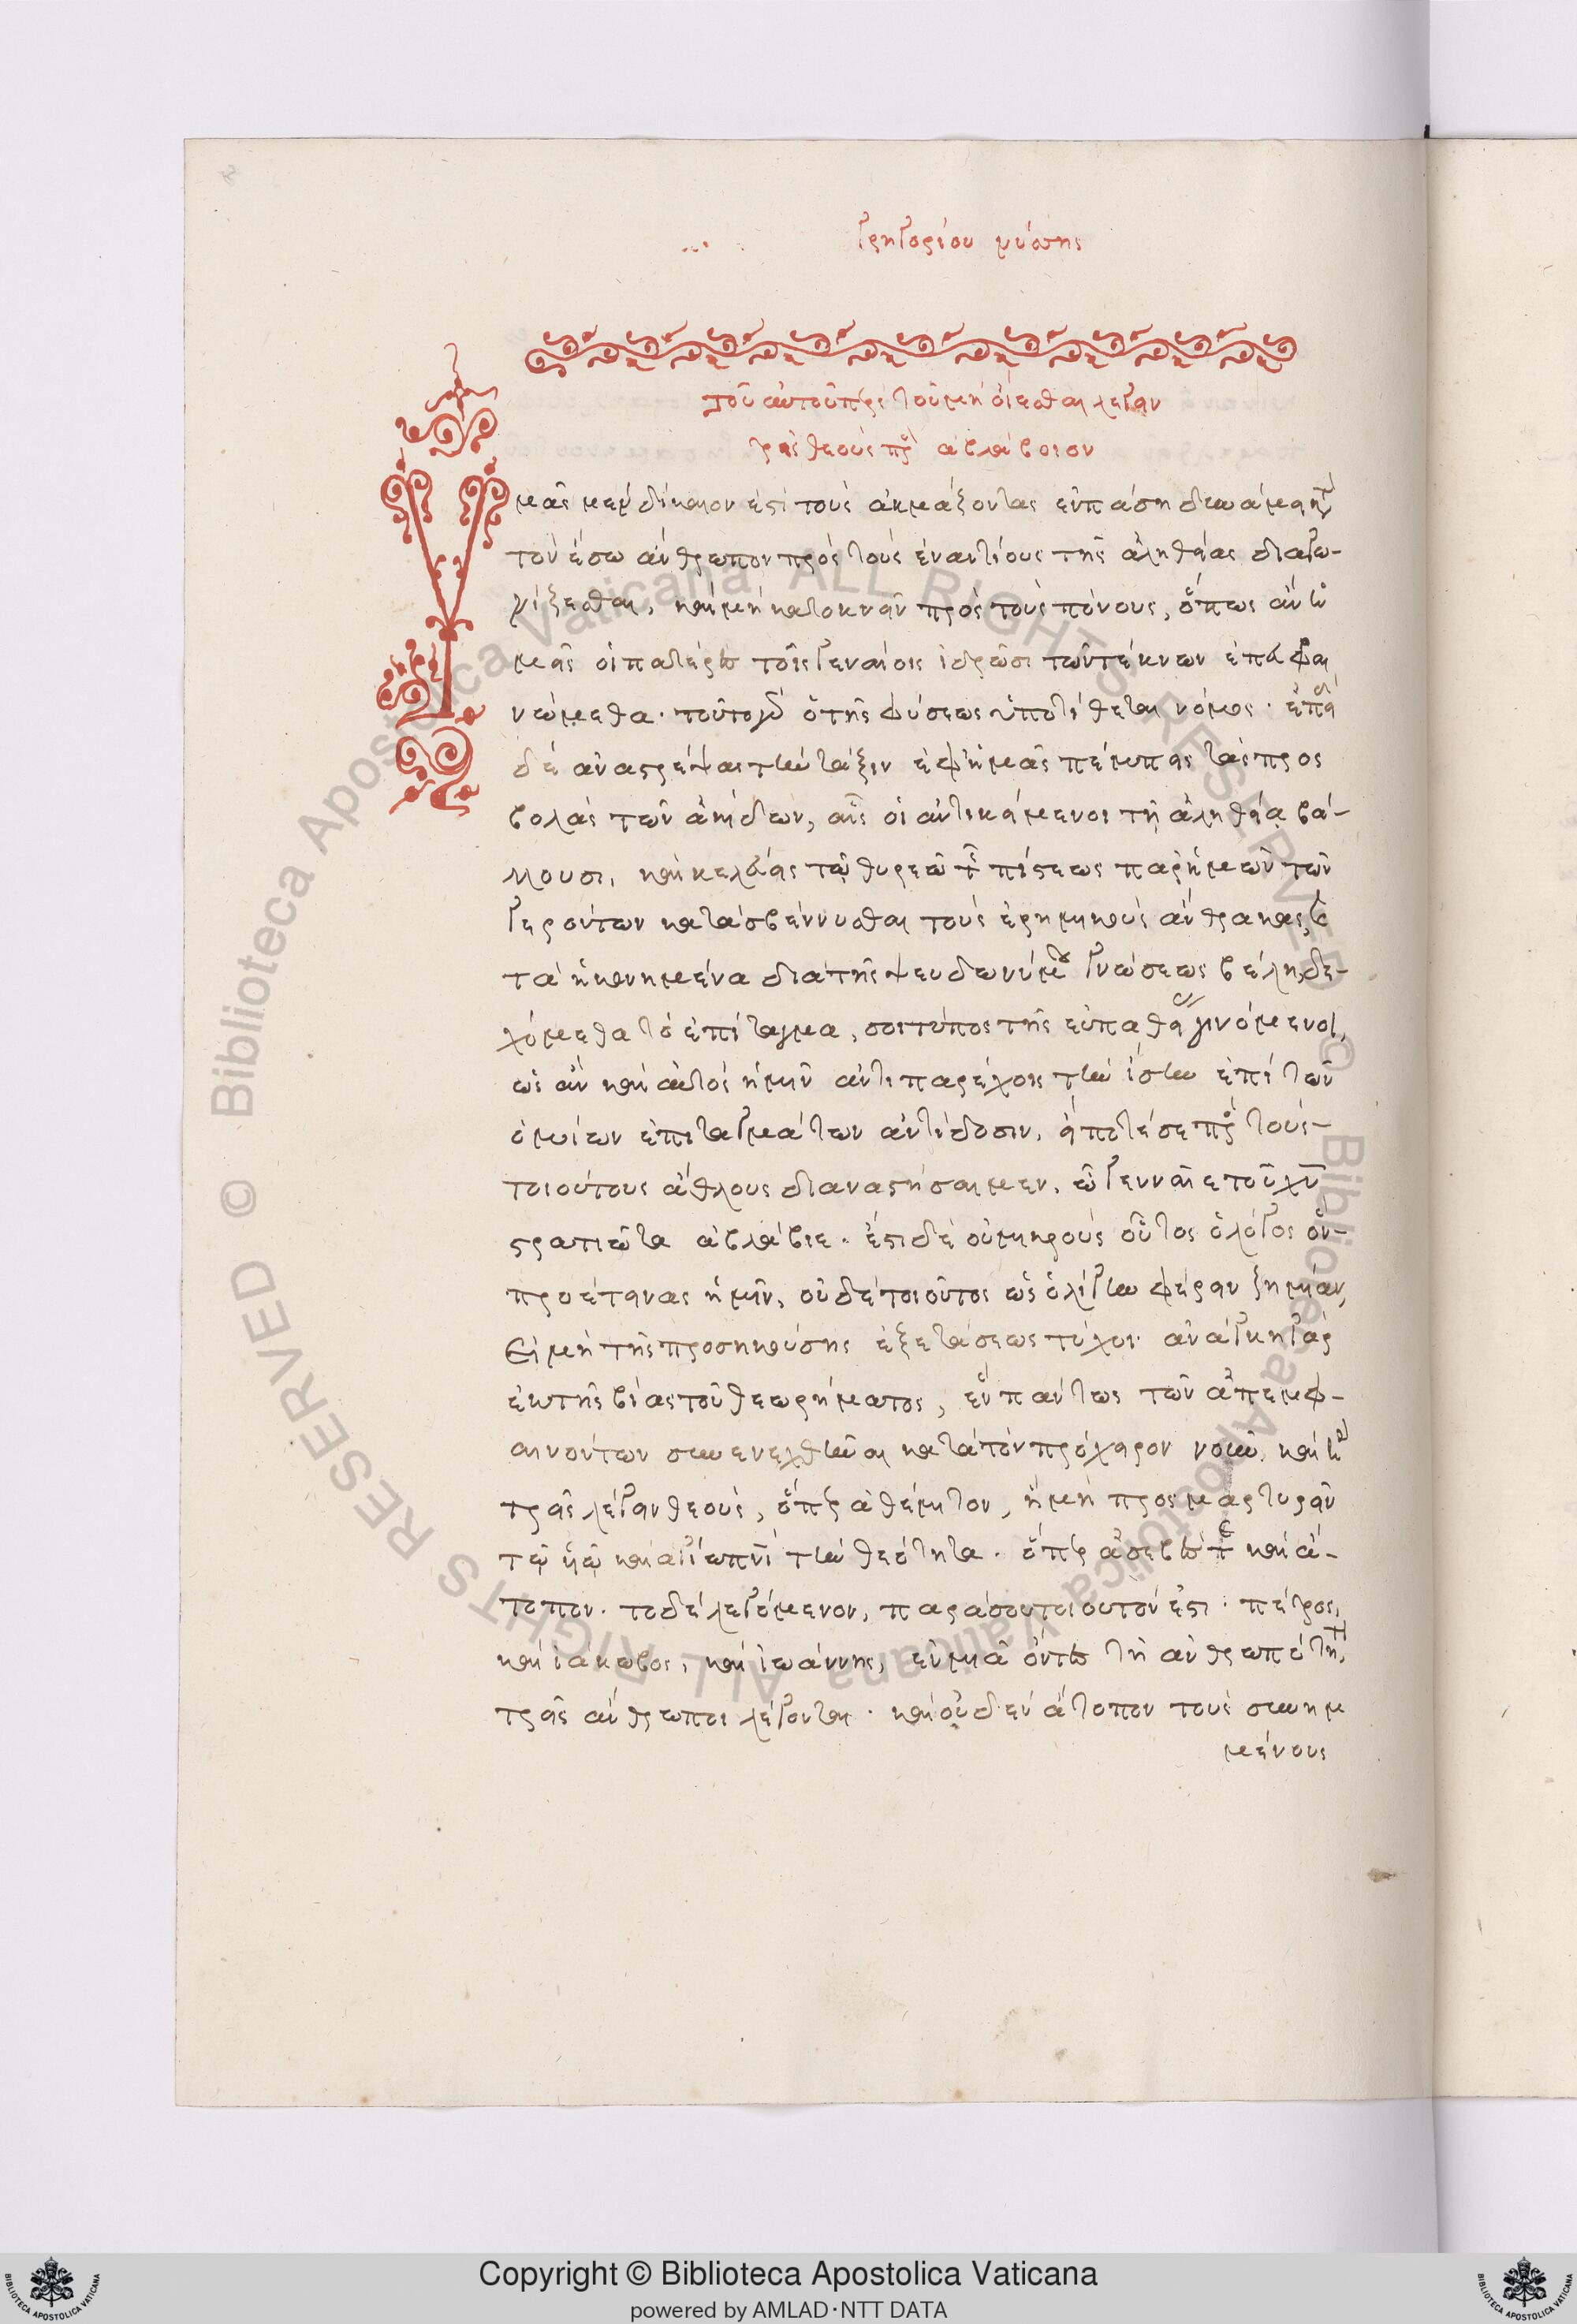 Γρηγορίου νύσσης
τοῦ αὐτοῦ περὶ τοῦ μὴ οἴεσθαι λέγειν
τρεῖς θεοὺς πρὸς ἀβλάβοιον
μᾶς μὲν δίκαιον ἐστὶ τοὺς ἀκμάζοντας ἐν πάση δυνάμει κτ
τὸν ἔσω ἄνθρωπον πρὸς τοὺς ἐναντίους τῆς ἀληθείας διαγω-
νίζεσθαι, καὶ μὴ κατοκνεῖν πρὸς τοὺς πόνους, ὅπως ἂν ἡ
μεῖς οἱ πατέρες τοῖς γεναίοις ἱδρῶσι τῶν τέκνων ἐπευφραι
νώμεθα. τοῦτο γὰρ ὁ τῆς φύσεως ὑποτίθεται νόμος. ἐπεὶ
δὲ ἀναστρέψας τὴν τάξιν ἐφ' ἡμᾶς πέμπεις τὰς προς
βολὰς τῶν ἀκίδων, αἷς οἱ ἀντικείμενοι τῇ ἀληθείᾳ βά-
λλουσι, καὶ κελεύεις τῷ θυρεῷ τῆς πίστεως παρ' ἡμῶν τῶν
γερόντων κατασβέννυσθαι τοὺς ἐρημικοὺς ἄνθρακας, καὶ
τὰ ἠκονημένα διὰ τῆς ψευδωνύμου γνώσεως βέλη, δε-
χόμεθα τὸ ἐπίταγμα, σοι τύπος τῆς εὐπειθείας γινόμενοι,
ὡς ἂν καὶ αὐτὸς ἡμῖν ἀντιπαρέχοις τὴν ἴσην ἐπὶ τῶν
ὁμοίων ἐπιταγμάτων ἀντίδοσιν, εἴποτέ σε πρὸς τοὺς-
τοιούτους ἄθλους διαναστήσαιμεν, ὦ γενναῖε τοῦ χῦ
στρατιῶτα ἀβλάβιε. ἔστι δὲ οὐ μικροὺς οὗτος ὁ λόγος ὃν-
προέτεινας ἡμῖν, οὐδὲ τοιοῦτος ὡς ὀλίγην φέρειν ζημίαν,
Εἰ μὴ τῆς προσηκούσης ἐξετάσεως τύχοι. ἀνάγκη γὰρ
ἐκ τῆς βίας τοῦ θεωρήματος, ἑνὶ πάντως τῶν ἀπεμφ-
αινόντων συνενεχθῆναι κατὰ τὸν πρόχειρον νοῦν. καὶ ἢ
τρεῖς λέγειν θεοὺς, ὅπερ ἀθέμιτον, ἢ μὴ προςμαρτυρεῖν
τῷ ὑῷ καὶ ἁγίω πνὶ τὴν θεότητα. ὅπερ ἀσεβές τε καὶ ἄ-
τοπον. τὸ δὲ λεγόμενον, παρὰ σου τοιουτόν ἐστι. πέτρος,
καὶ ἰάκωβος, καὶ ἰωάννης, ἐν μιᾷ ὄντες τῇ ἀνθρωπότητι,
τρεῖς ἄνθρωποι λέγονται. καὶ οὐδὲν ἄτοπον τοὺς συνημ
μένους
Copyright © Biblioteca Apostolica Vaticana
powered by AMLAD·NTT DATA